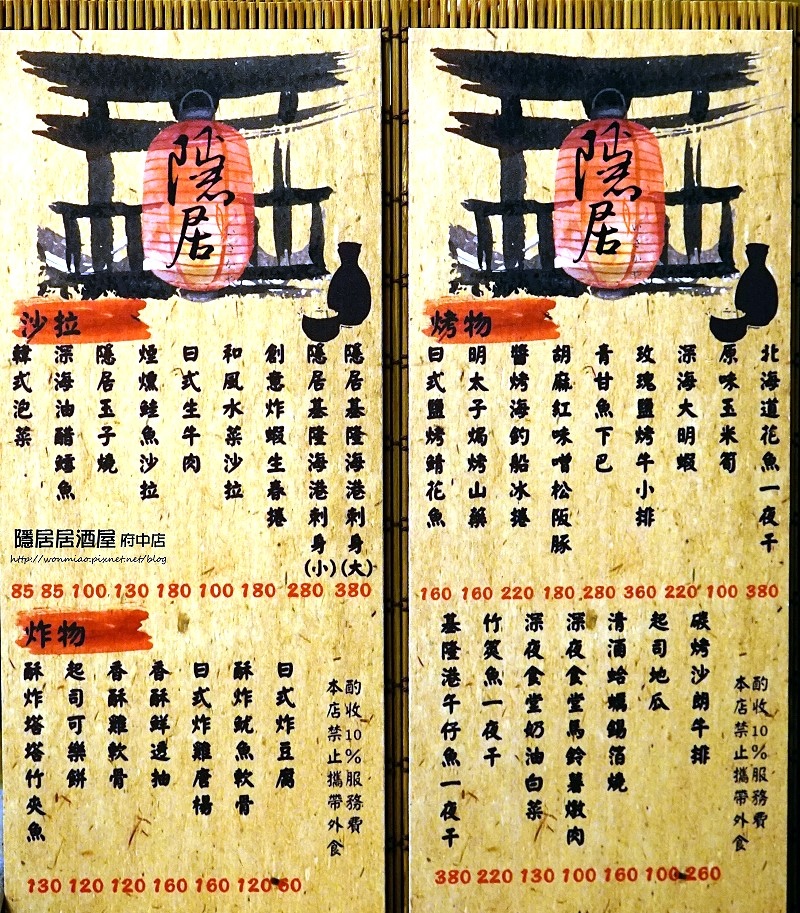 隱居
沙拉
隱居基隆海港刺身(大)
隱居基隆海港刺身(小)
創意炸蝦生春捲
和風水菜沙拉
日式生牛肉
煙燻鮭魚沙拉
隱居玉子燒
深海油醋鱈魚
韓式泡菜
隱居居酒屋 府中店
http://wonmiao.pixnet.net/blog
85 85 100 130 180 100 180 280 380
炸物
日式炸豆腐
酥炸魷魚軟骨
日式炸雞唐楊
香酥鮮透抽
香酥雞軟骨
起司可樂餅
酥炸塔塔竹夾魚
酌收10%服務費
本店禁止攜帶外食
130 120 120 160 160 120 60
隱居
烤物
北海道花魚一夜干
原味玉米筍
深海大明蝦
玫瑰鹽烤牛小排
青甘魚下巴
胡麻紅味噌松阪豚
醬烤海釣船冰捲
明太子焗烤山藥
日式鹽烤鯖花魚
160 160 220 180 280 360 220 100 380
碳烤沙朗牛排
起司地瓜
清酒蛤蠣錫箔燒
深夜食堂馬鈴薯燉肉
深夜食堂奶油白菜
竹筴魚一夜干
基隆港午仔魚一夜干
酌收10%服務費
本店禁止攜帶外食
380 220 130 100 160 100 260